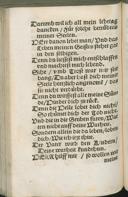 Darumb wil ich all mein lebetag
dancken / für solche
meiner Seelen.
HErr davon lebet man / Und das
Leben meines Geistes stehet gar
in den selbigen.
Denn du liessest mich entschlaffen
und machtest mich lebend.
Sihe / umb Trost war mir seer
bange / Du aber hast dich meiner
Seele hertzlich angenomen / das
sie nicht verdürbe.
Denn du wirffest alle meine Sünde
hinder dich zu rück.
Denn die Helle lobet dich nicht /
So rhümet dich der Tod nicht /
Und die in die Gruben faren / War
ten nicht auff deine Warheit.
Sondern allein die da leben, loben
dich / Wie ich itzt thue.
Der Vater wird den Kindern /
Deine warheit kundthun.
HErr hilff mir / so wollen wir
meine